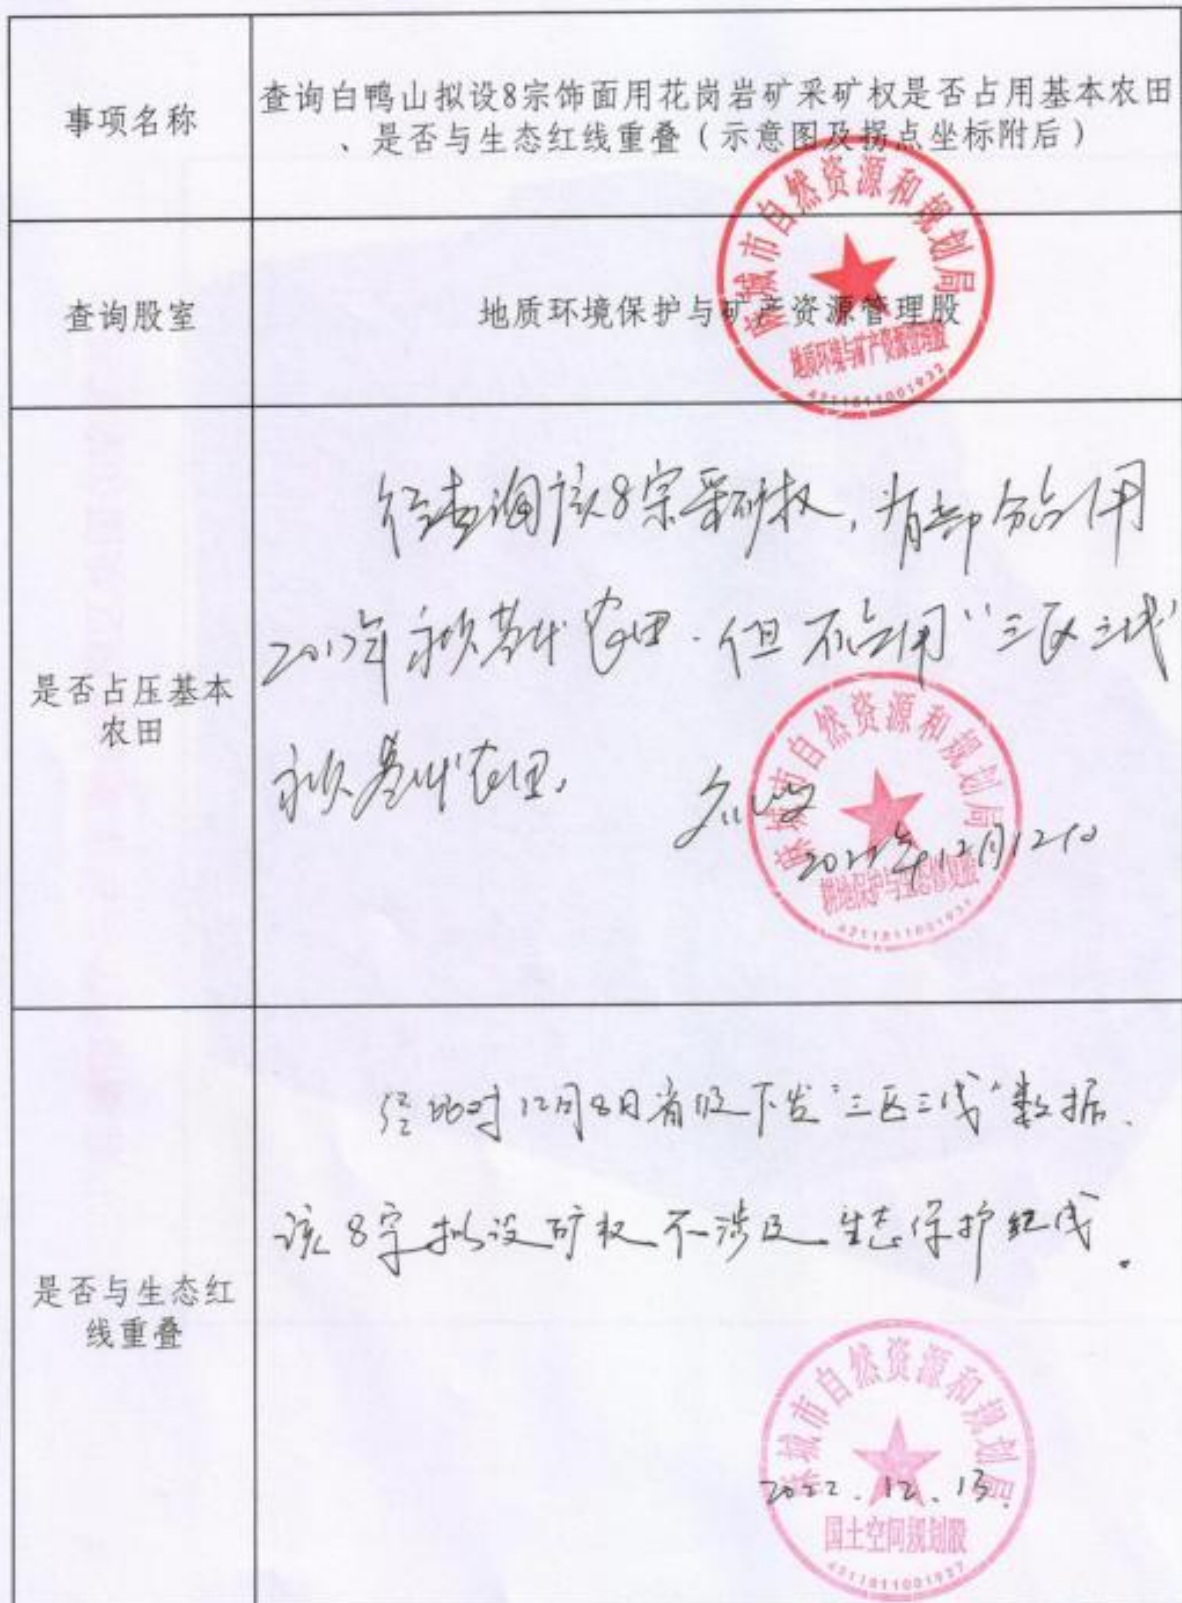 事项名称
查询白鸭山拟设8宗饰面用花岗岩矿采矿权是否占用基本农田
、是否与生态红线重叠(示意图及拐点坐标附后)
查询股室
地质环境保护与矿产资源管理股
麻城市自然资源和规划局
地质环境与矿产资源管理股
4211811001932
是否占压基本
农田
经查询该8宗采矿权,有部分占用
2017年永久基本农田.但不占用“三区三线”
永久基本农田.
2022年12月12日
麻城市自然资源和规划局
耕地保护与生态修复股
是否与生态红
线重叠
经比对12月8日省级下发“三区三线”数据.
该8宗拟设矿权不涉及生态保护红线.
2022.12.13.
麻城市自然资源和规划局
国土空间规划股
4211811001927